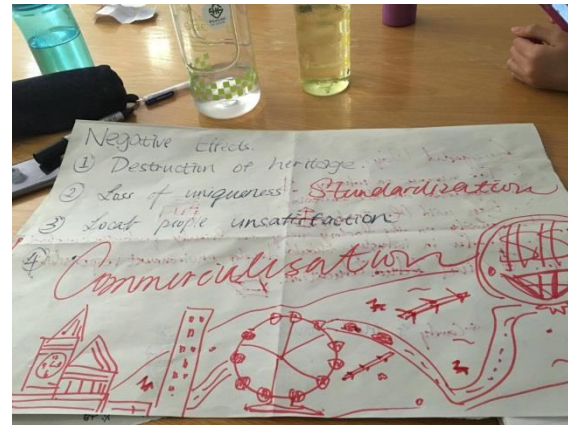 Negative Effects.
① Destruction of heritage.
② Loss of uniqueness - Standardization
③ Local people unsatisfaction
④ Commercialisation